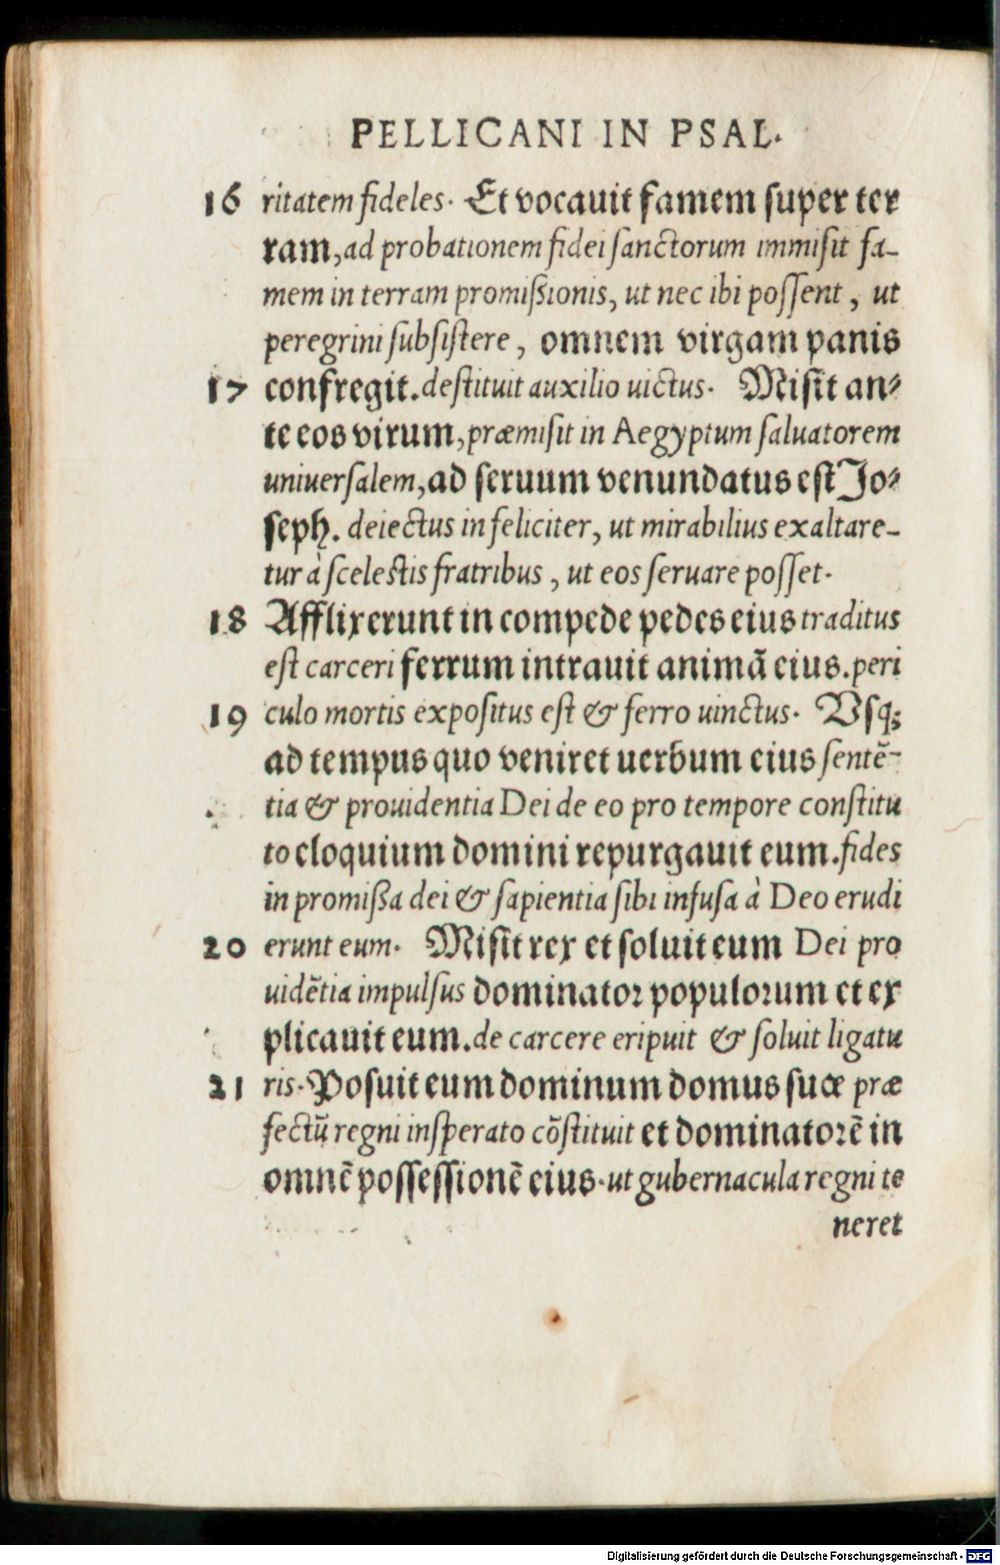 PELLICANI IN PSAL.
16 ritatem fideles. Et vocauit famem super ter
ram, ad probationem fidei sanctorum immisit fa-
mem in terram promißionis, ut nec ibi possent, ut
peregrini subsistere, omnem virgam panis
17 confregit. destituit auxilio uictus. Misit an-
te eos virum, præmisit in Aegyptum saluatorem
uniuersalem, ad seruum venundatus est Jo-
seph. deiectus infeliciter, ut mirabilius exaltare-
tur à scelestis fratribus, ut eos seruare posset.
18 Afflixerunt in compede pedes eius traditus
est carceri ferrum intrauit animã eius. peri
19 culo mortis expositus est & ferro uinctus. Vsq;
ad tempus quo veniret uerbum eius sentẽ-
tia & prouidentia Dei de eo pro tempore constitu
to eloquium domini repurgauit eum. fides
in promißa dei & sapientia sibi infusa à Deo erudi
20 erunt eum. Misit rex et soluit eum Dei pro
uidẽtia impulsus dominator populorum et ex
plicauit eum. de carcere eripuit & soluit ligatu
21 ris. Posuit eum dominum domus suæ præ
fectũ regni insperato cõstituit et dominatorẽ in
omnẽ possessionẽ eius. ut gubernacula regni te
neret
Digitalisierung gefördert durch die Deutsche Forschungsgemeinschaft - DFG